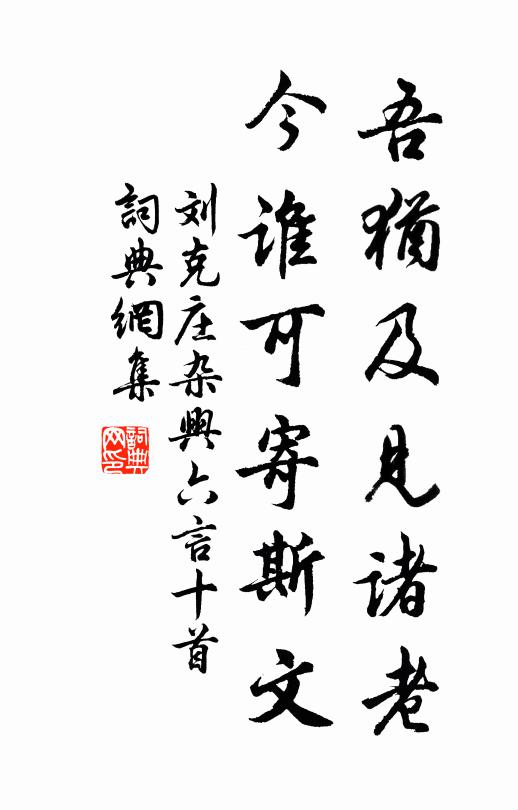 吾猶及見诸老
今谁可寄斯文
刘克庄杂興六言十首
詞典網集
詞典
网印